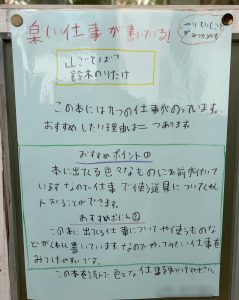 楽しい仕事が書いている!
山ごとばつ
鈴木のりたけ
この本には九つの仕事がのっています。
おすすめしたい理由は二つあります。
おすすめポイント①
本に出てくる色々なものに名前が付いて
いますなので仕事で使う道具についてくわし
く知ることができます。
おすすめポイント②
この本に出てくる仕事についてや使うものな
どがくわしく書いています。なのでやってみたい仕事を
みつけやすいです。
この本を読んで色々な仕事を